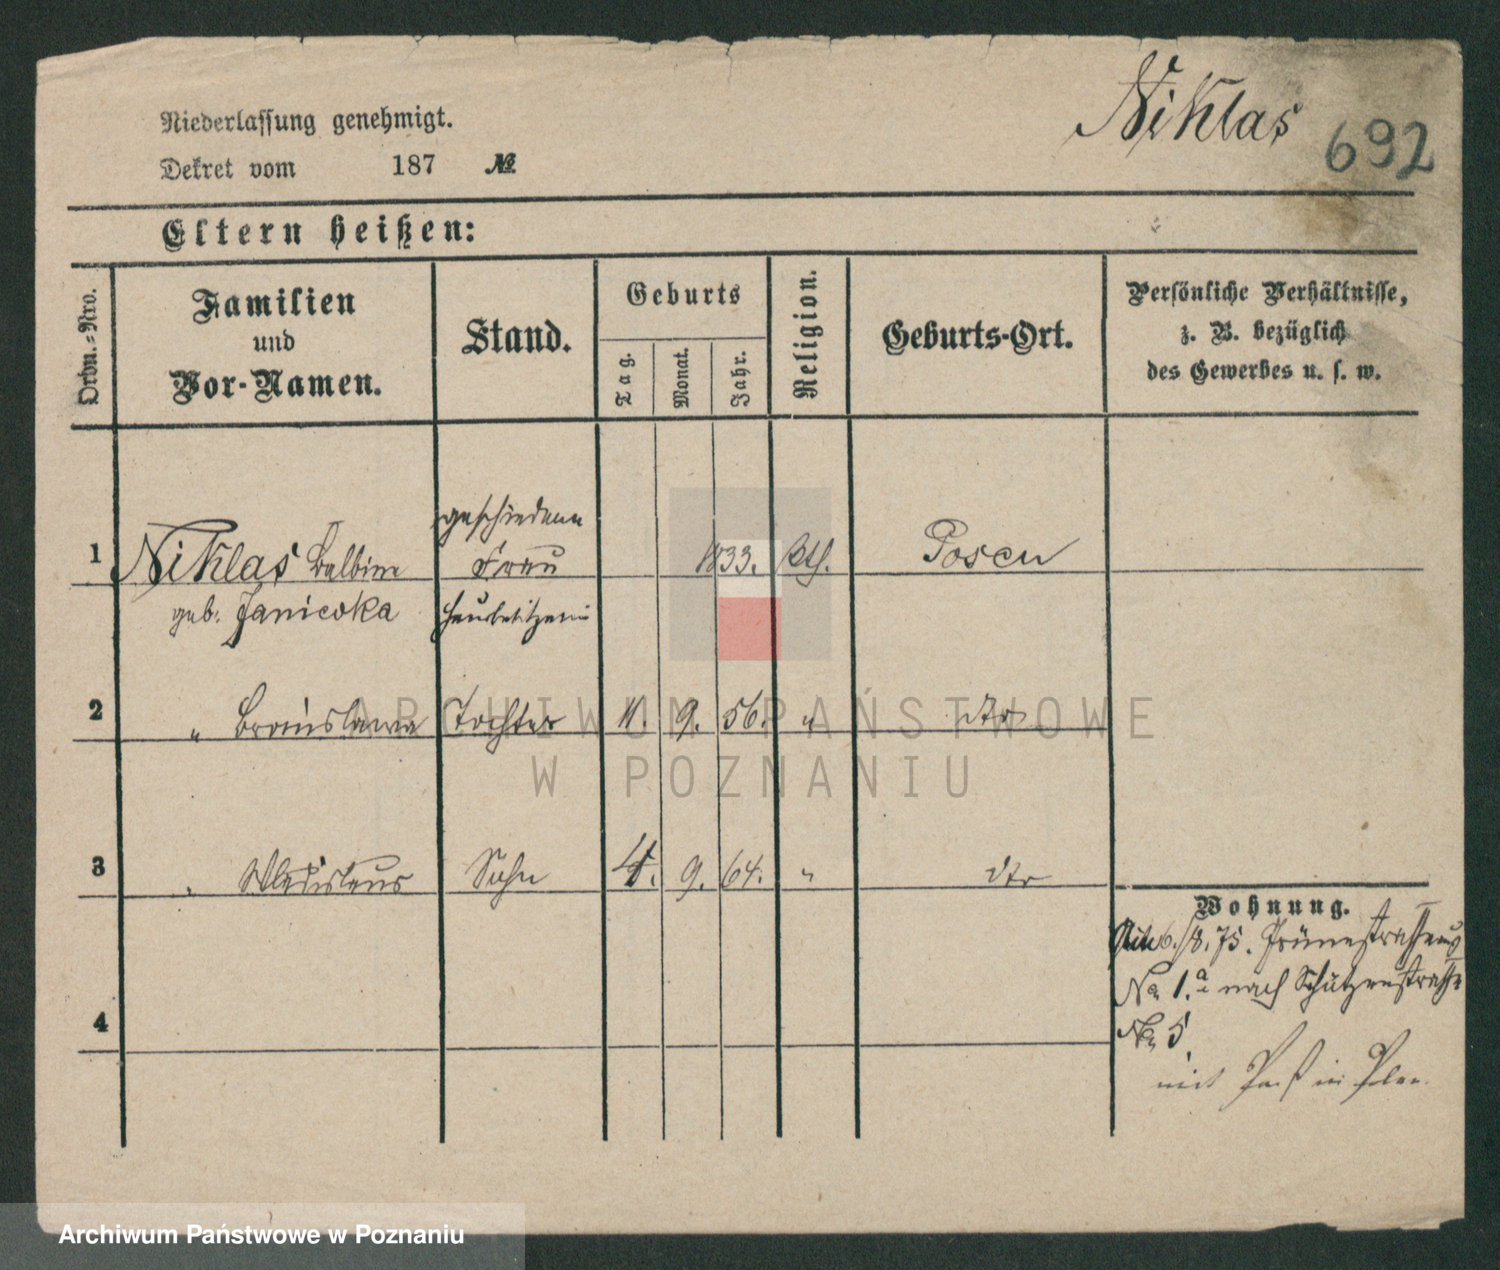 Niklas
692
Niederlassung genehmigt.
Dekret vom 187 №
Eltern heißen:
Ordn.-Nro.
Familien
und
Vor-Namen.
Stand.
Geburts
Tag.
Monat.
Jahr.
Religion.
Geburts-Ort.
Persönliche Verhältnisse,
z. B. bezüglich
des Gewerbes u. s. w.
geschiedene
1 Niklas Balbina Frau 1833. kth. Posen
geb. Janicka Hausbesitzerin
2 " Bronislawa Tochter 11. 9. 56. " dto
3 " Wladislaus Sohn 4. 9. 64. " dto
Wohnung.
6./8. 75.
No 1.a nach Schützenstraße
No 5
4
mit Paß in
ARCHIWUM PAŃSTWOWE
W POZNANIU
Archiwum Państwowe w Poznaniu